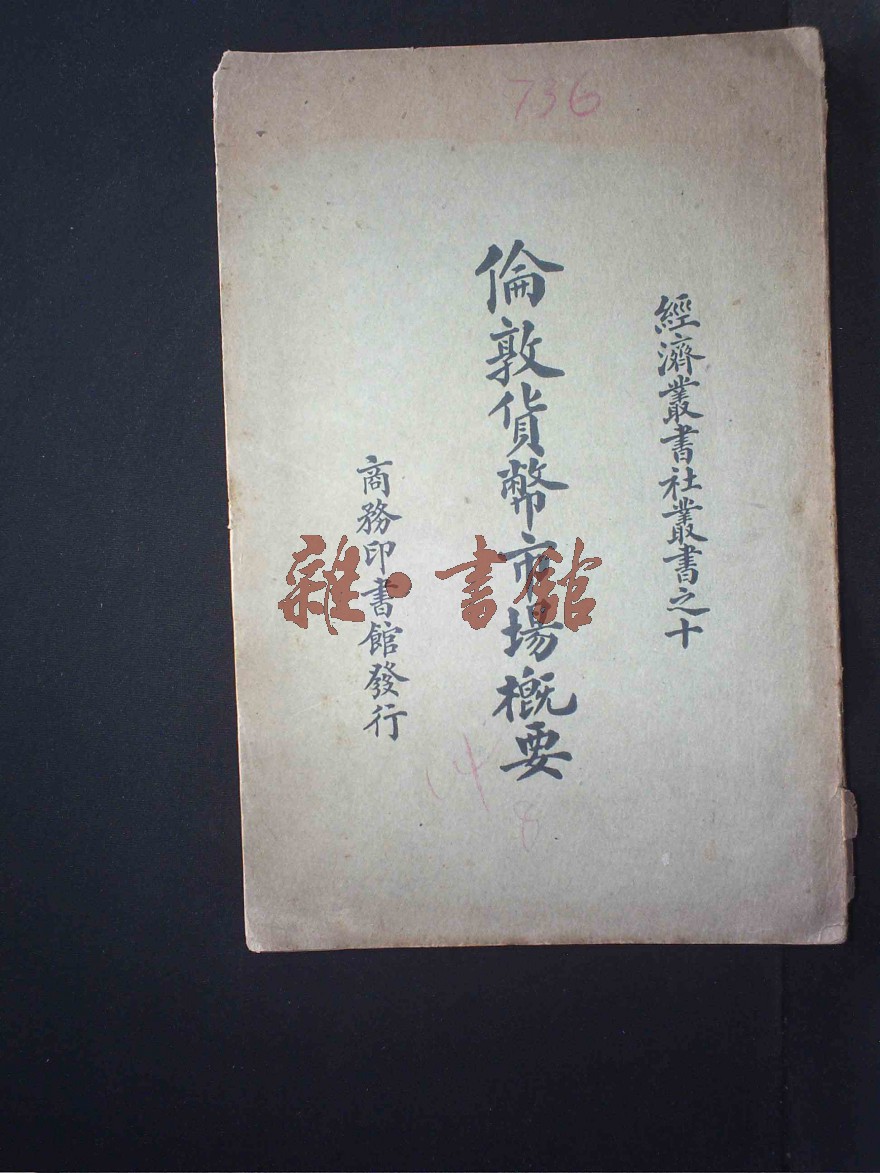 736
經濟叢書社叢書之十
倫敦貨幣市場概要
商務印書館發行
雜·書館
14
8